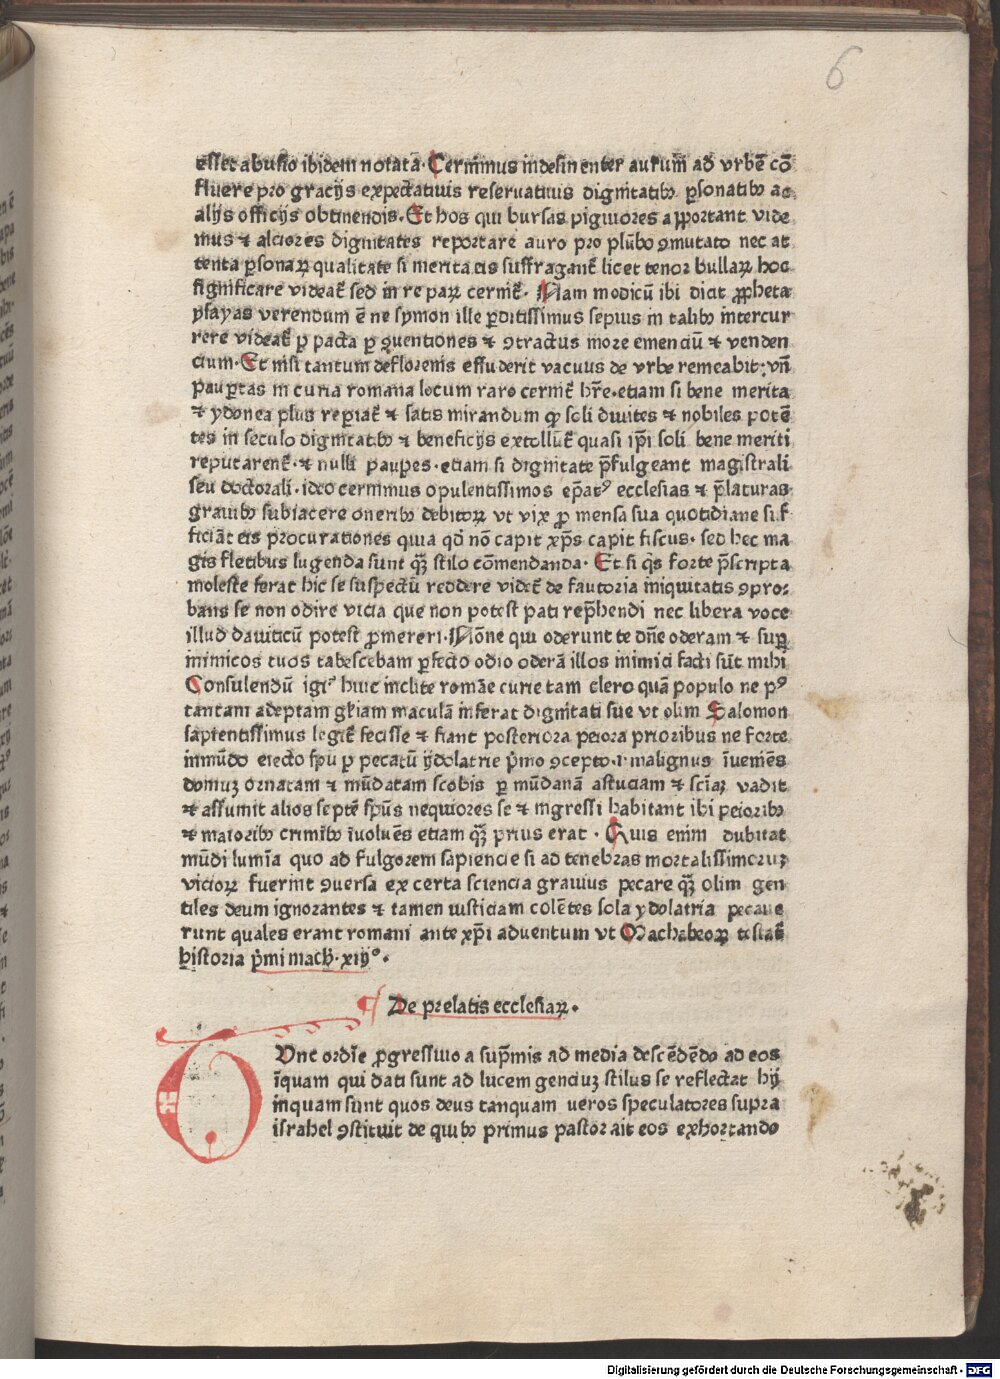 6
esset abusio ibidem notatā. Cernimus indesinenter aurum̄ ad vrbē cō
fluere pro gracijs expectatiuis reseruatiuis dignitatibꝫ ꝑsonatibꝫ ac
alijs officijs obtinendis. Et hos qui bursas pigwiores apportant vide
mus ⁊ alciores dignitates reportare auro pro plūbo ꝯmutato nec at
tenta ꝑsonaꝝ qualitate si merita eis suffragant᷑ licet tenor bullaꝝ hoc
significare videat᷑ sed in re paꝝ cernit᷑. Nam modicū ibi diat ꝓpheta
ysayas verendum ē ne symon ille ꝑditissimus sepius in talibꝫ intercur
rere videat᷑ ꝑ pacta ꝑ ꝯuentiones ⁊ ꝯtractus more emenciū ⁊ venden
cium. Et nisi tantum deflorenis effuderit vacuus de vrbe remeabit: vn̄
pauꝑtas in curia romana locum raro cernit᷑ hr̄e. etiam si bene merita
⁊ ydonea plus reꝑiat᷑ ⁊ satis mirandum ꝙ soli diuites ⁊ nobiles potē
tes in seculo dignitatibꝫ ⁊ beneficijs extollūt᷑ quasi ip̄i soli bene meriti
reputarent᷑. ⁊ nulli pauꝑes. etiam si dignitate p̄fulgeant magistrali
seu doctorali. ideo cernimus opulentissimos ep̄atꝰ ecclesias ⁊ p̄laturas
grauibꝫ subiacere oneribꝫ debitoꝝ vt vix ꝑ mensa sua quotidiane suf
ficiāt eis procurationes quia qd̄ nō capit xp̄s capit fiscus. sed hec ma
gis fletibus lugenda sunt qꝫ̄ stilo cōmendanda. Et si qs̄ forte p̄scripta
moleste ferat hic se suspectū reddere videt᷑ de fautoria iniquitatis ꝯpro:
bans se non odire vicia que non potest pati rep̄hendi nec libera voce
illud dauiticū potest ꝓmereri. Nōne qui oderunt te dn̄e oderam ⁊ suꝑ
inimicos tuos tabescebam ꝑfecto odio oderā illos inimici facti sūt mihi
Consulendū igiᷣ huic inclite romāe curie tam clero quā populo ne pꝰ
tantam adeptam gl̄iam maculā inferat dignitati sue vt olim Salomon
sapientissimus legit᷑ fecisse ⁊ fiant posteriora peiora prioribus ne forte
inmūdo eiecto sp̄u ꝑ pecatū ydolatrie p̄mo ꝯcepto. r malignus īueniēs
domuꝫ ornatam ⁊ mūdatam scobis ꝑ mūdanā astuciam ⁊ sciaꝫ̄ vadit
⁊ assumit alios septē sp̄us nequiores se ⁊ ingressi habitant ibi peioribꝫ
⁊ maioribꝫ crimībꝫ īuoluēs etiam qꝫ̄ prius erat. Quis enim dubitat
mūdi lumīa quo ad fulgorem sapiencie si ad tenebras mortalissimoruꝫ
vicioꝝ fuerint ꝯuersa ex certa sciencia grauius pecare qꝫ̄ olim gen
tiles deum ignorantes ⁊ tamen iusticiam colētes sola ydolatria pecaue
runt quales erant romani ante xp̄i aduentum vt Machabeoꝝ testat᷑
historia p̄mi mach. xiijº.
De prelatis ecclesiaꝝ.
Vnc ordīe ꝓgressiuo a sup̄mis ad media descēdēdo ad eos
īquam qui dati sunt ad lucem genciuꝫ stilus se reflectat hij
inquam sunt quos deus tanquam ueros speculatores supra
israhel ꝯstituit de quibꝫ primus pastor ait eos exhortando
Digitalisierung gefördert durch die Deutsche Forschungsgemeinschaft - DFG